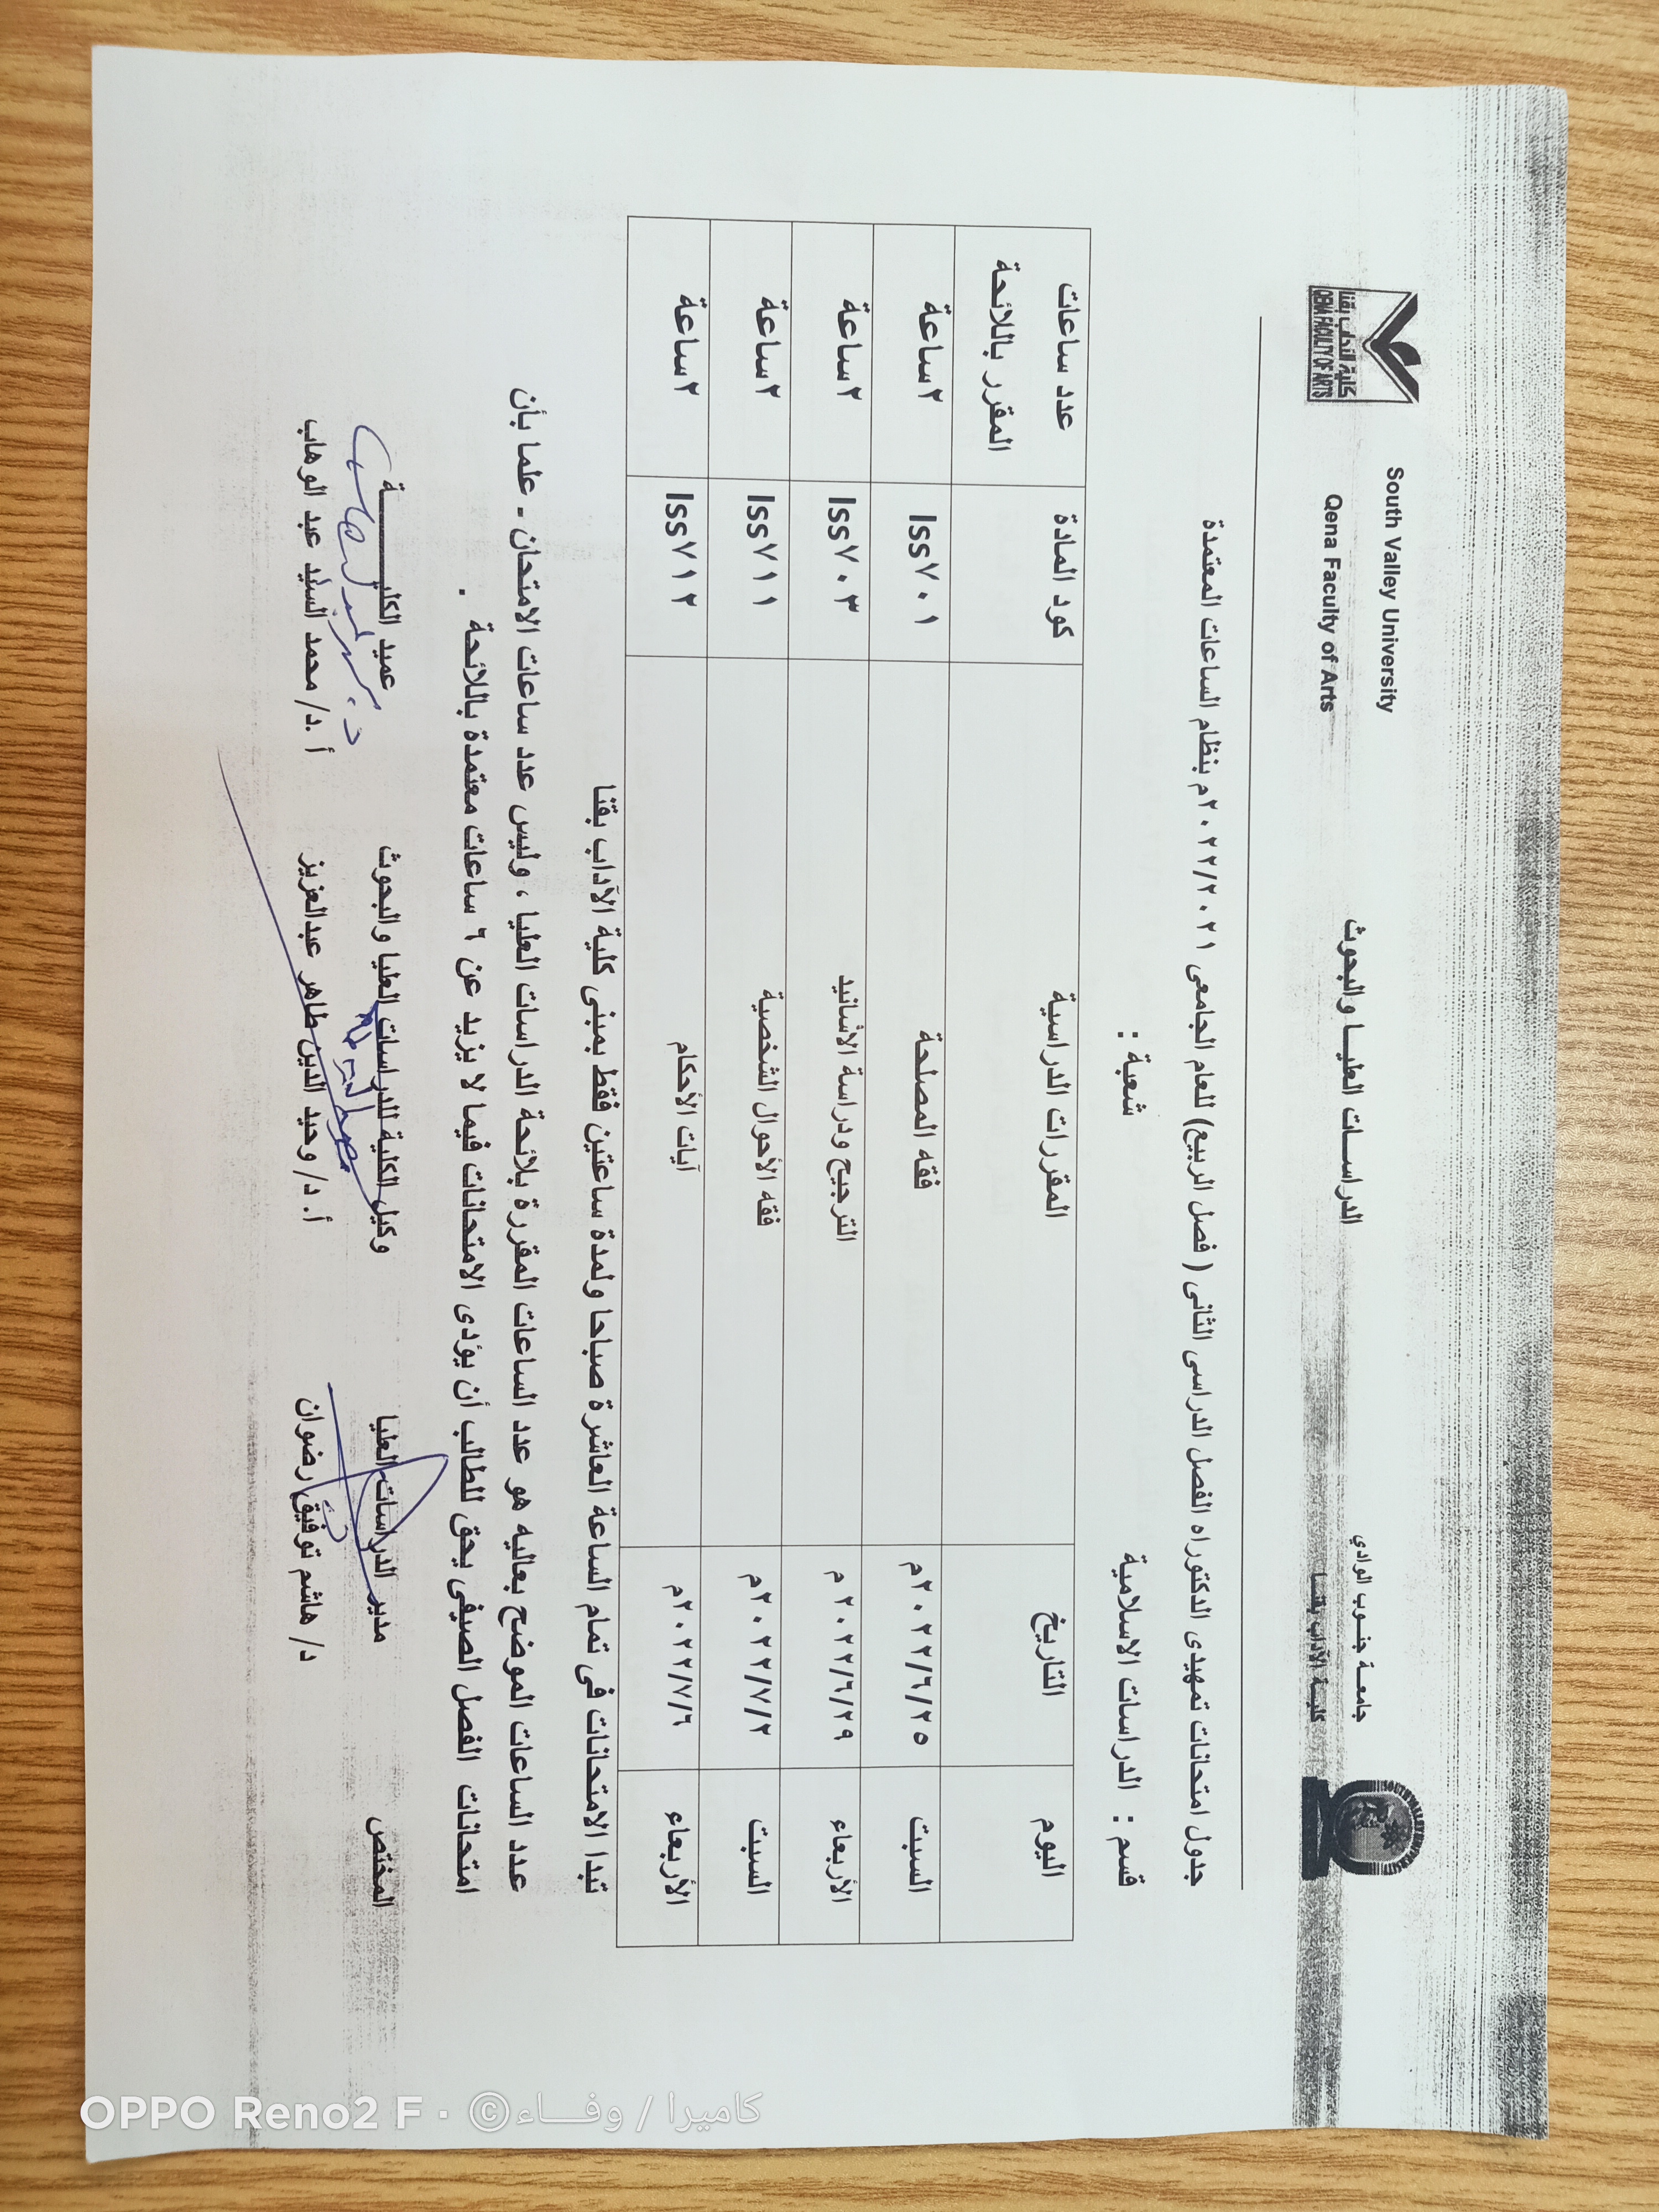 جامعـــة جنـــوب الوادي
كليـــة الآداب بقنـــا
الدراســـات العليـــا والبحوث
South Valley University
Qena Faculty of Arts
كلية الآداب بقنا
QENA FACULTY OF ARTS
جدول امتحانات تمهيدى الدكتوراه الفصل الدراسى الثانى ( فصل الربيع) للعام الجامعى ٢٠٢٢/٢٠٢١م بنظام الساعات المعتمدة
قسم : الدراسات الاسلامية شعبة :
اليوم التاريخ المقررات الدراسية كود المادة عدد ساعات المقرر باللائحة
السبت ٢٠٢٢/٦/٢٥م فقه المصلحة Iss٧٠١ ٢ساعة
الأربعاء ٢٠٢٢/٦/٢٩م الترجيح ودراسة الأسانيد Iss٧٠٣ ٢ساعة
السبت ٢٠٢٢/٧/٢م فقه الأحوال الشخصية Iss٧١١ ٢ساعة
الأربعاء ٢٠٢٢/٧/٦م آيات الأحكام Iss٧١٢ ٢ساعة
تبدا الامتحانات فى تمام الساعة العاشرة صباحا ولمدة ساعتين فقط بمبنى كلية الآداب بقنا
عدد الساعات الموضح بعاليه هو عدد الساعات المقررة بلائحة الدراسات العليا ، وليس عدد ساعات الامتحان - علما بأن
امتحانات الفصل الصيفى يحق للطالب أن يؤدى الامتحانات فيما لا يزيد عن ٦ ساعات معتمدة باللائحة .
المختص مدير الدراسات العليا وكيل الكلية للدراسات العليا والبحوث عميد الكليــــــــة
د/ هاشم توفيق رضوان أ. د/ وحيد الدين طاهر عبدالعزيز أ .د/ محمد السيد عبد الوهاب
OPPO Reno2 F · ©كاميرا / وفـــاء